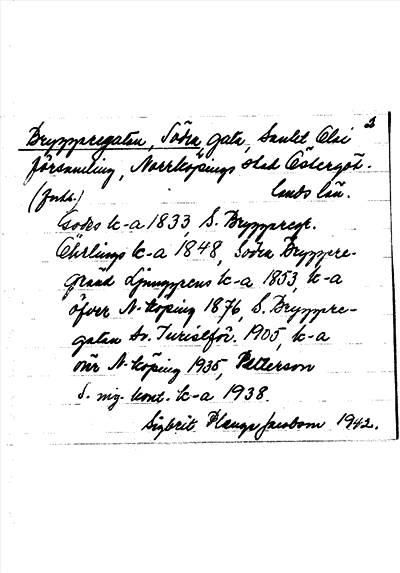 2
Bryggaregatan, Södra, gata, Sankt Olai
församling, Norrköpings stad Östergöt-
(forts.) lands län.
k-a 1833, S. Bryggaregr.
Öhrlings k-a 1848, Södra Bryggare-
gränd Ljunggrens k-a 1853, k-a
öfver N-köping 1876, S. Bryggare-
gatan Sv. Turistför. 1905, k-a
över N-köping 1935, Petterson
S. ing. kont. k-a 1938.
Sigbrit Plænge Jacobson 1942.